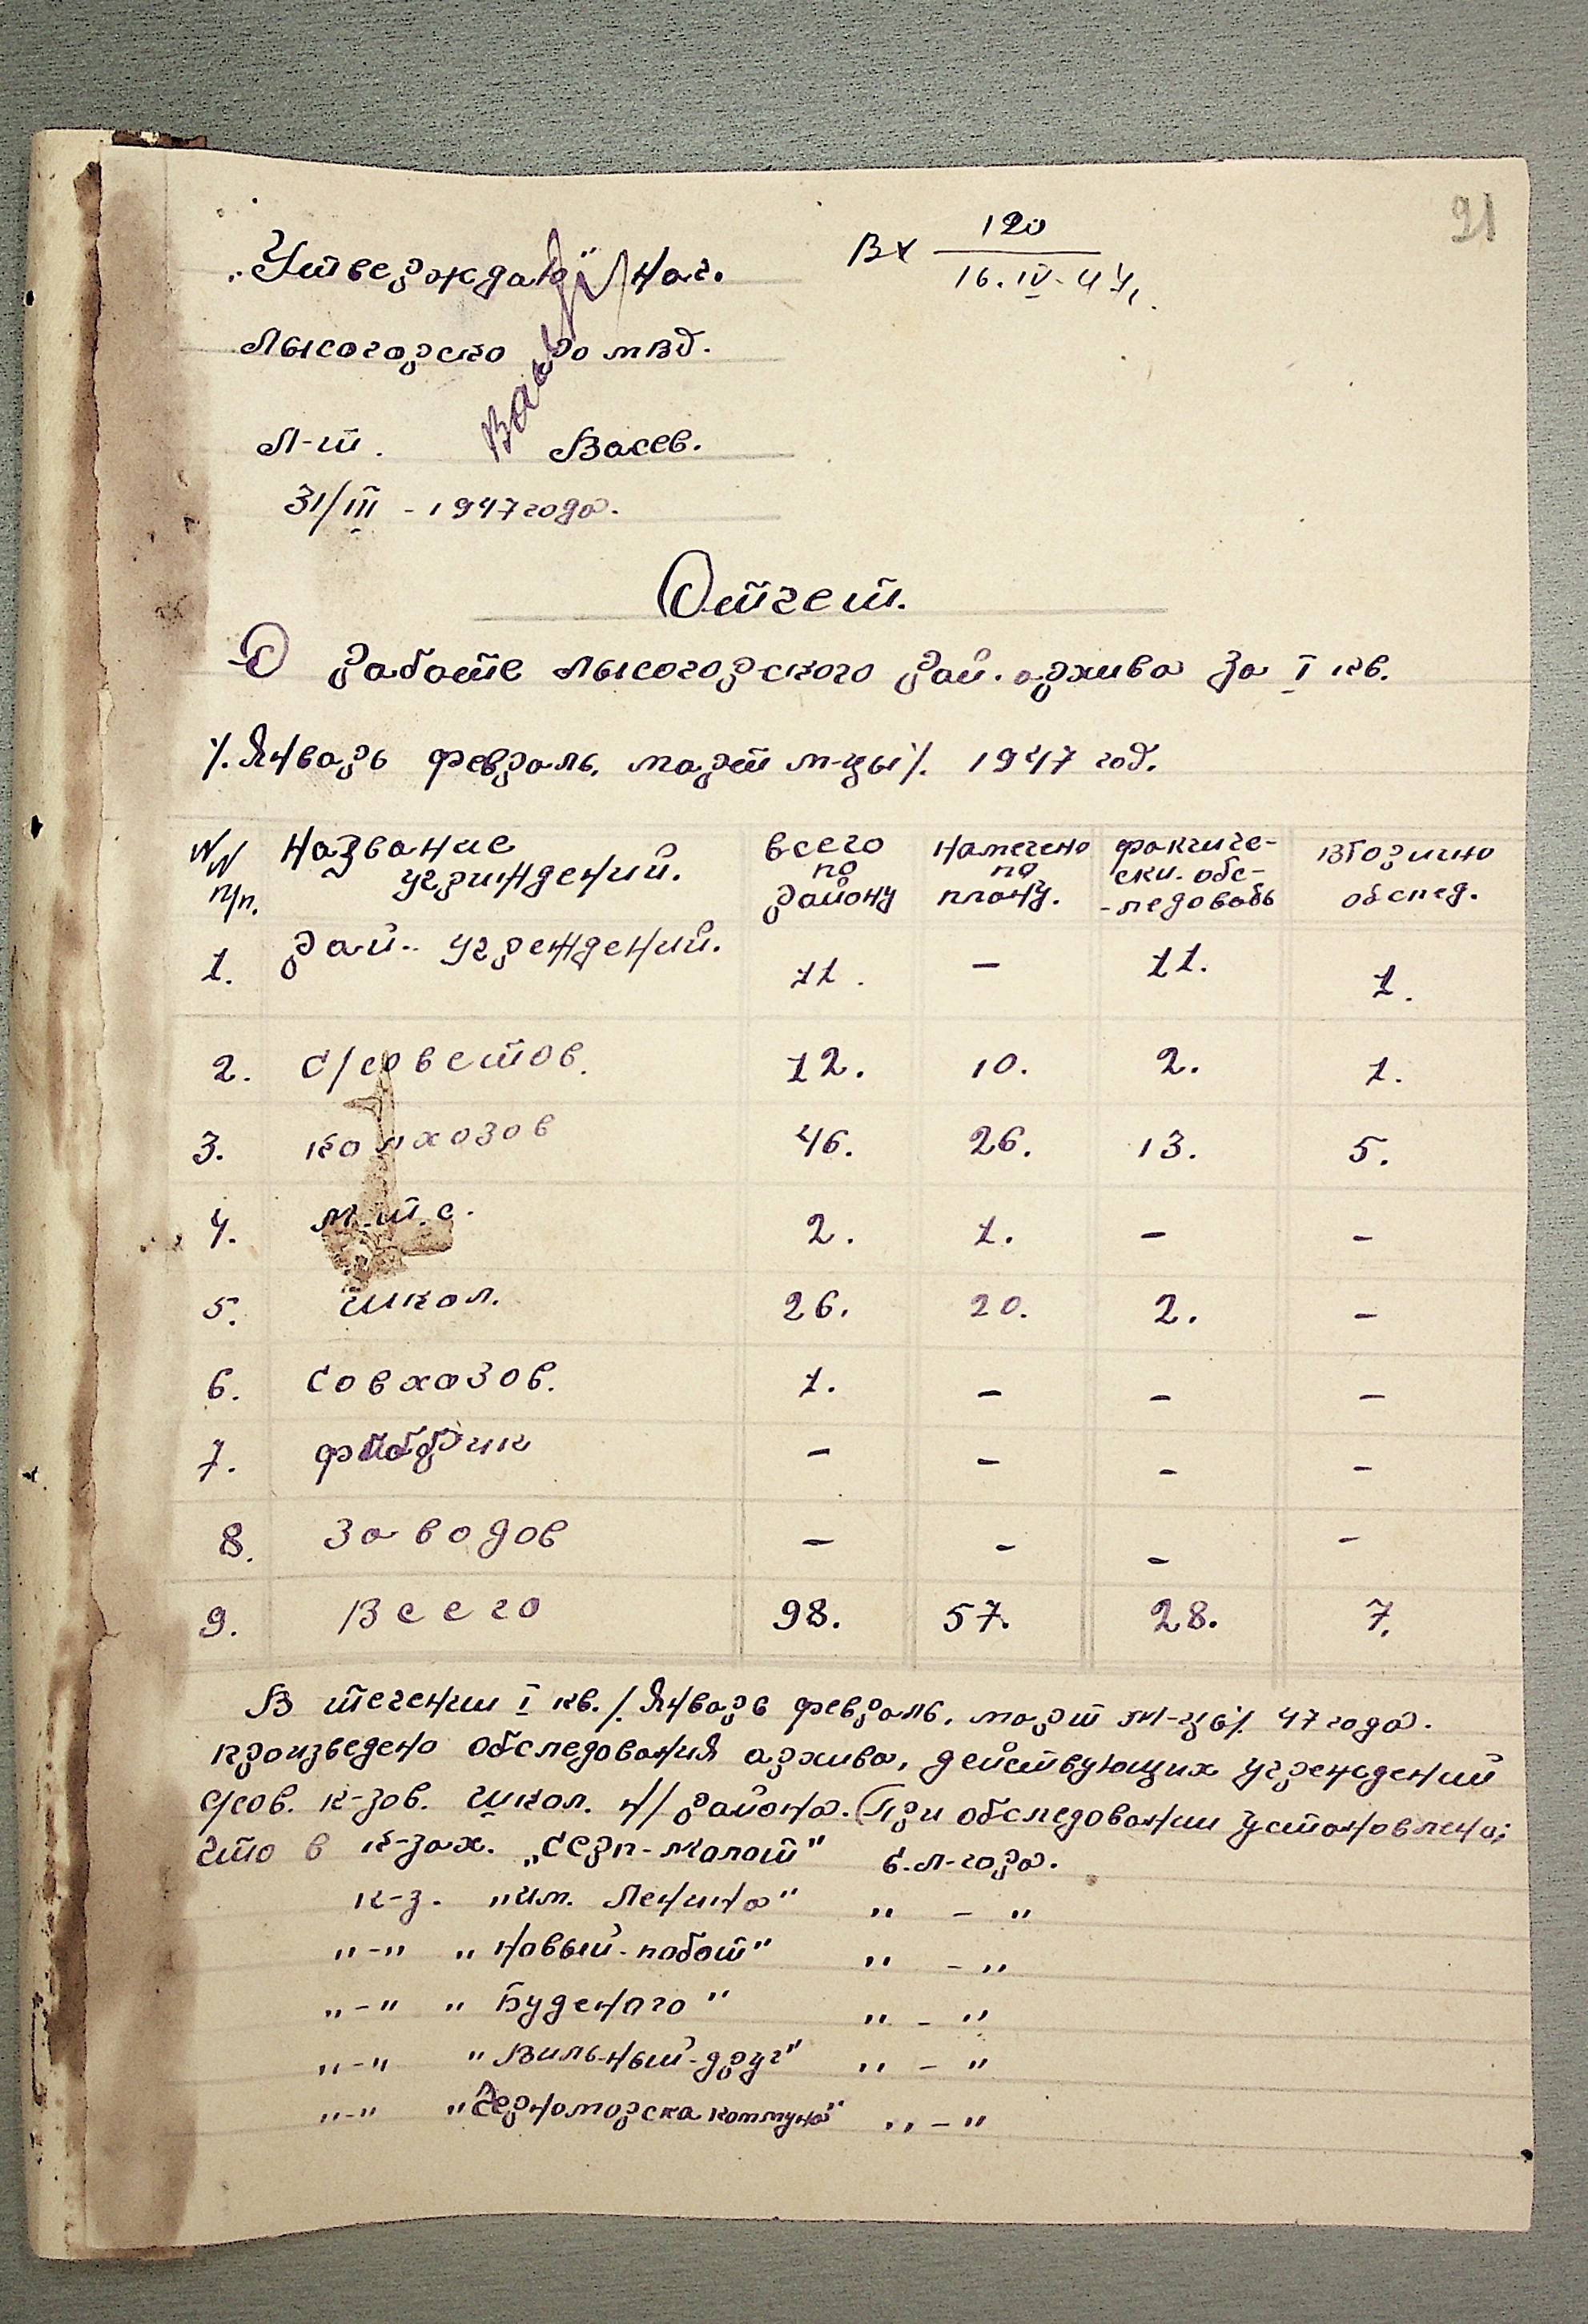 91
Вх 120
16.IV-47г.
„Утверждаю" Нач.
Лысогорско ро мвд.
Л-т. Васев.
31/III - 1947 года.
Отчет.
О работе Лысогорского рай. архива за I кв.
/. Январь февраль, март м-цы/. 1947 год.
NN п/п. Название учриждений. всего по району намечено по плану. фактиче- ски обс- -ледовать вторично обслед.
1. рай.. учреждений. 11. - 11. 1.
2. с/советов. 12. 10. 2. 1.
3. колхозов 46. 26. 13. 5.
4. м.т.с. 2. 1. - -
5. школ. 26. 20. 2. -
6. совхозов. 1. - - -
7. фабрик - - - -
8. заводов - - - -
9. Всего 98. 57. 28. 7.
В течении I кв. /. Январь февраль, март м-цы/. 47 года.
произведено обследования архива, действующих учреждений
с/сов. к-зов. школ. н/района. При обследовании установлено;
что в к-зах. „Серп-молот" с.л-гора.
к-з. „им. Ленина" „ - "
„-" „Новый-побот" „ - "
„-" „Буденого" „ - "
„-" „Вильный-друг" „ - "
„-" „Черноморска коммуна" „ - "